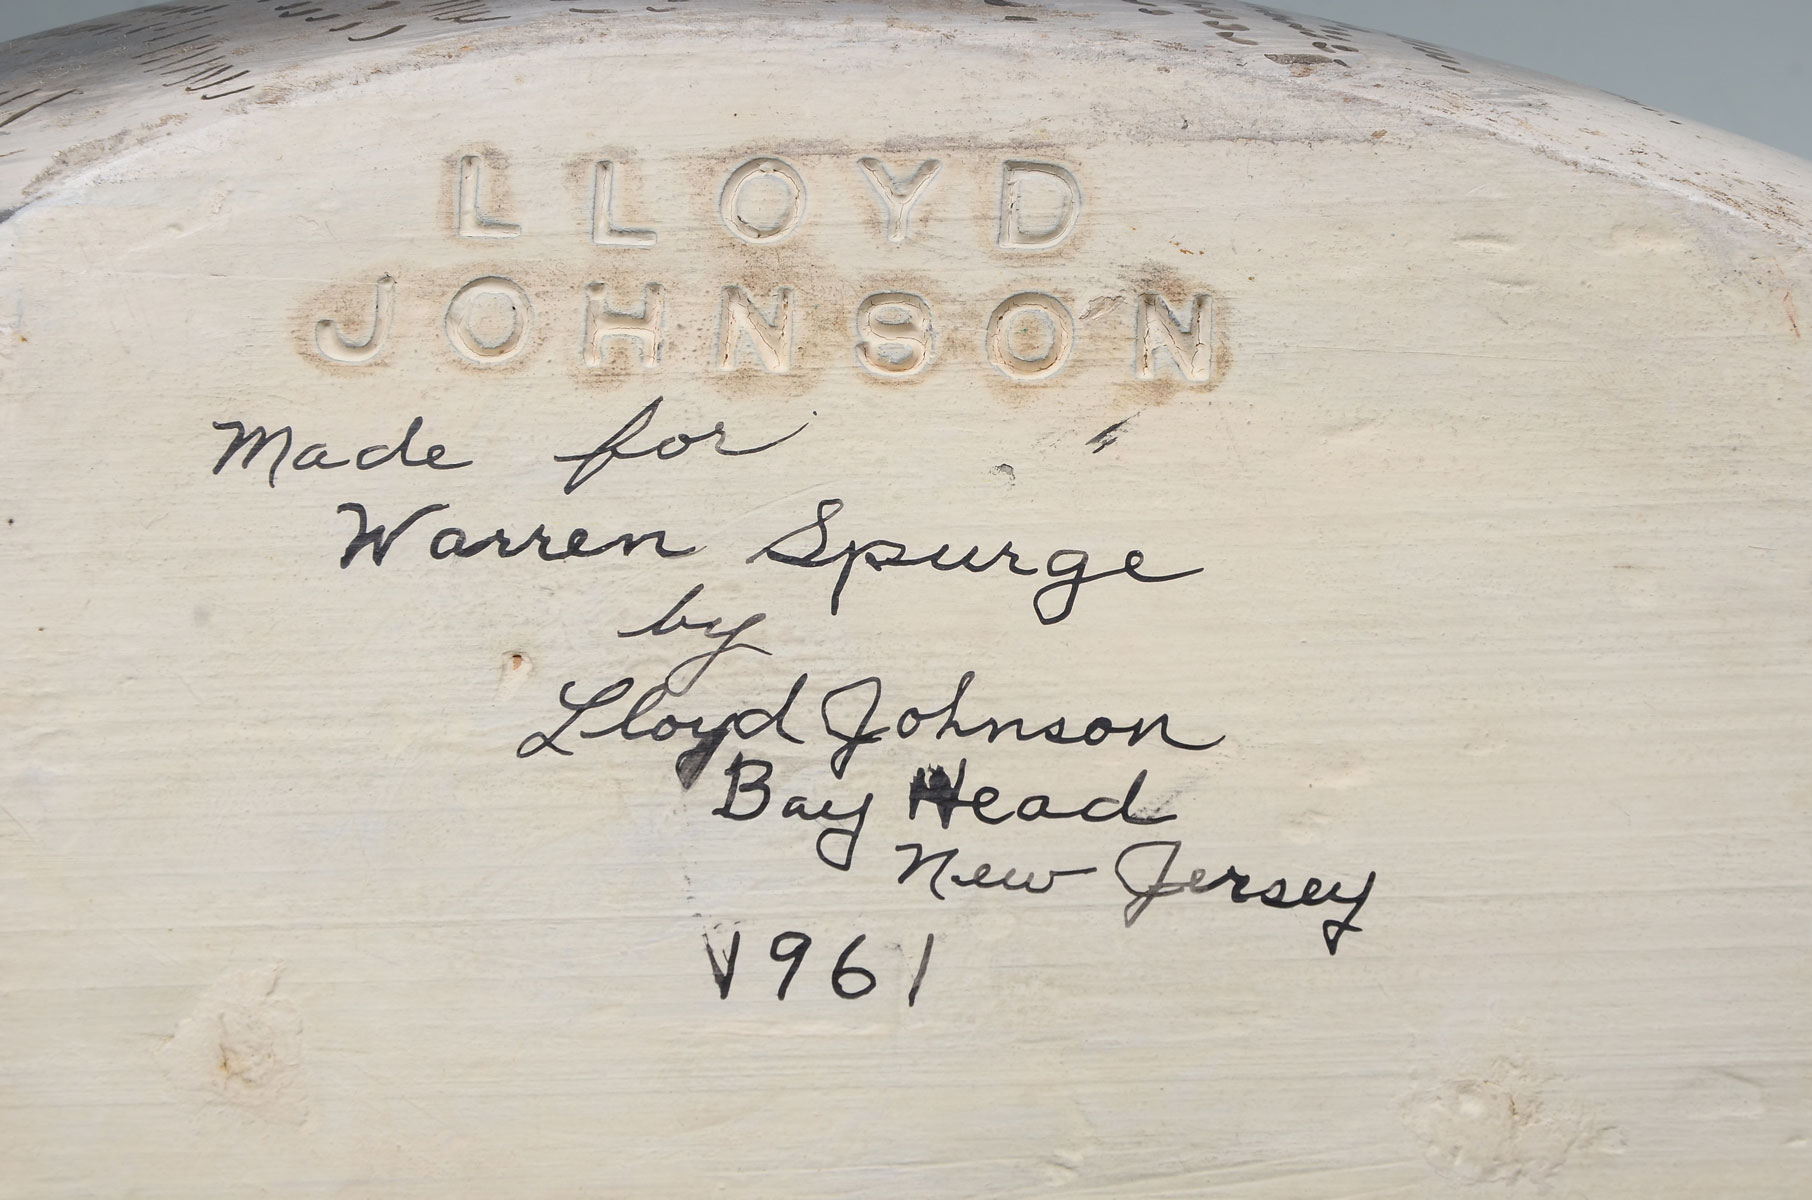 LLOYD
JOHNSON
Made for
Warren Spurge
by
Lloyd Johnson
Bay Head
New Jersey
1961